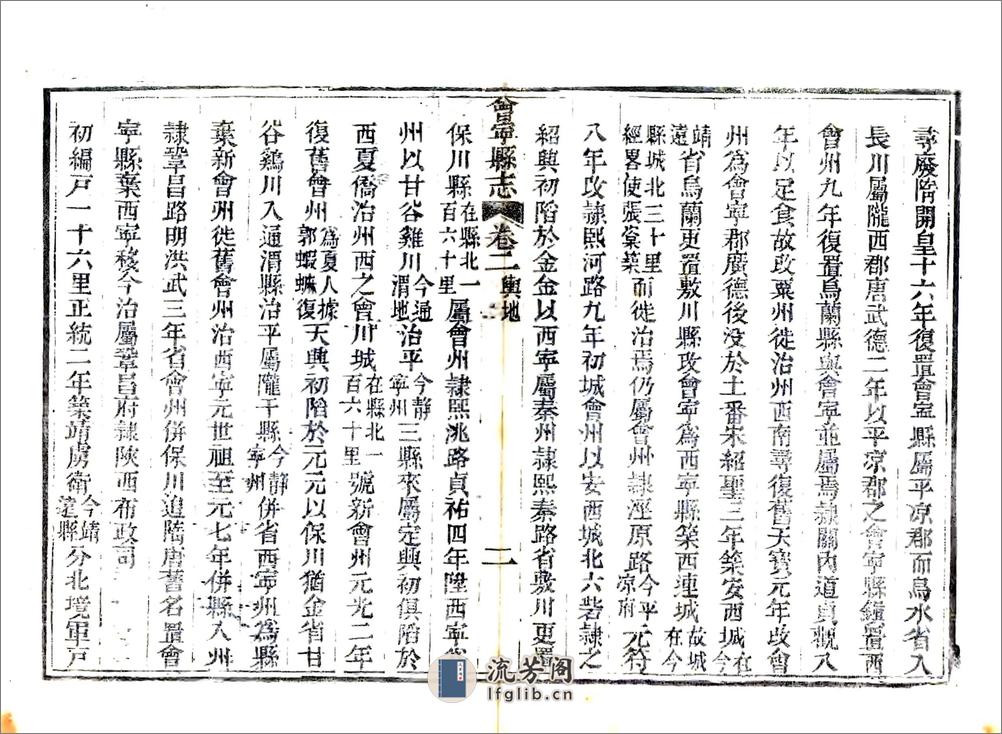 尋廢隋開皇十六年復置會寧縣屬平凉郡而烏水省入
長川屬隴西郡唐武德二年以平凉郡之會寧縣鎮置西
會州九年復置烏蘭縣與會寧並屬焉隸關內道貞觀八
年以足食故改粟州徙治州西南尋復舊天寶元年改會
州為會寧郡廣德後没於土番宋紹聖三年築安西城今在
靖遠省烏蘭更置敷川縣改會寧為西寧縣築西連城故城在今
縣城北三十里經畧使張棠築而徙治焉仍屬會州隸涇原路今平凉府元符
八年改隸熙河路九年初城會州以安西城北六砦隸之
紹興初陷於金金以西寧屬秦州隸熙秦路省敷川更置
會寧縣志 卷二輿地 二
保川縣在縣北一百六十里屬會州隸熙洮路貞祐四年陞西寧為
州以甘谷雞川今通渭地治平今靜寧州三縣來屬定興初俱陷於
西夏僑治州西之會川城在縣北一百六十里號新會州元光二年
復舊會州為夏人據郭蝦蟆復天興初陷於元元以保川猶金省甘
谷鷄川入通渭縣治平屬隴干縣今靜寧州併省西寧州為縣
棄新會州徙舊會州治西寧元世祖至元七年併縣入州
隸鞏昌路明洪武三年省會州併保川追隋唐舊名置會
寧縣棄西寧移今治屬鞏昌府隸陝西布政司
初編戸一十六里正統二年築靖虜衛今靖遠縣分北境軍戸
流芳阁
lfglib.cn